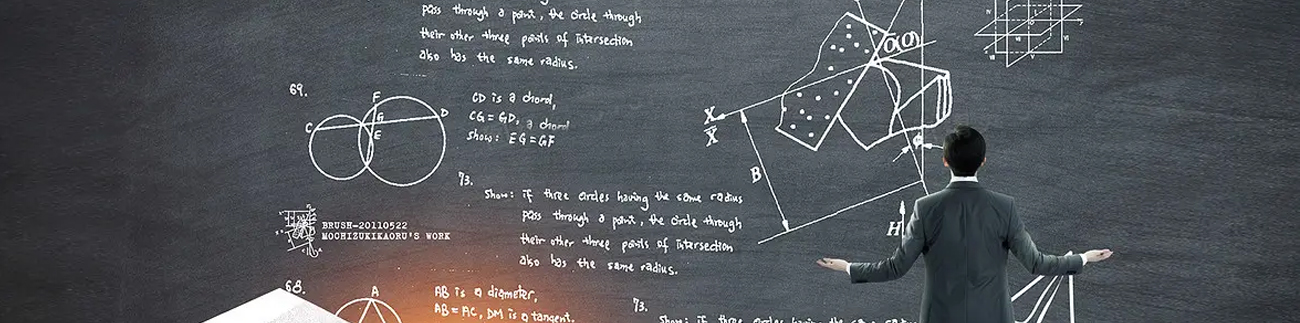 pass through a point, the circle through
their other three points of intersection
also has the same radius.
69.
F
C
G
D
E
CD is a chord,
CG = GD, a chord
show: EG = GF
73.
Show: if three circles having the same radius
pass through a point, the circle through
their other three points of intersection
also has the same radius.
BRUSH-20110522
MOCHIZUKIKAORU'S WORK
68.
A
AB is a diameter,
AB = AC, DM is a tangent.
73.
Show: if three circles having the same radius
X
X̄
B
H